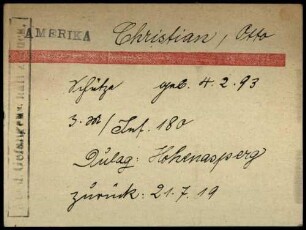 AMERIKA Christian, Otto
Schütze geb. 4.2.93
3. / Inf. 180
Dulag: Hohenasperg
zurück: 21.7.19